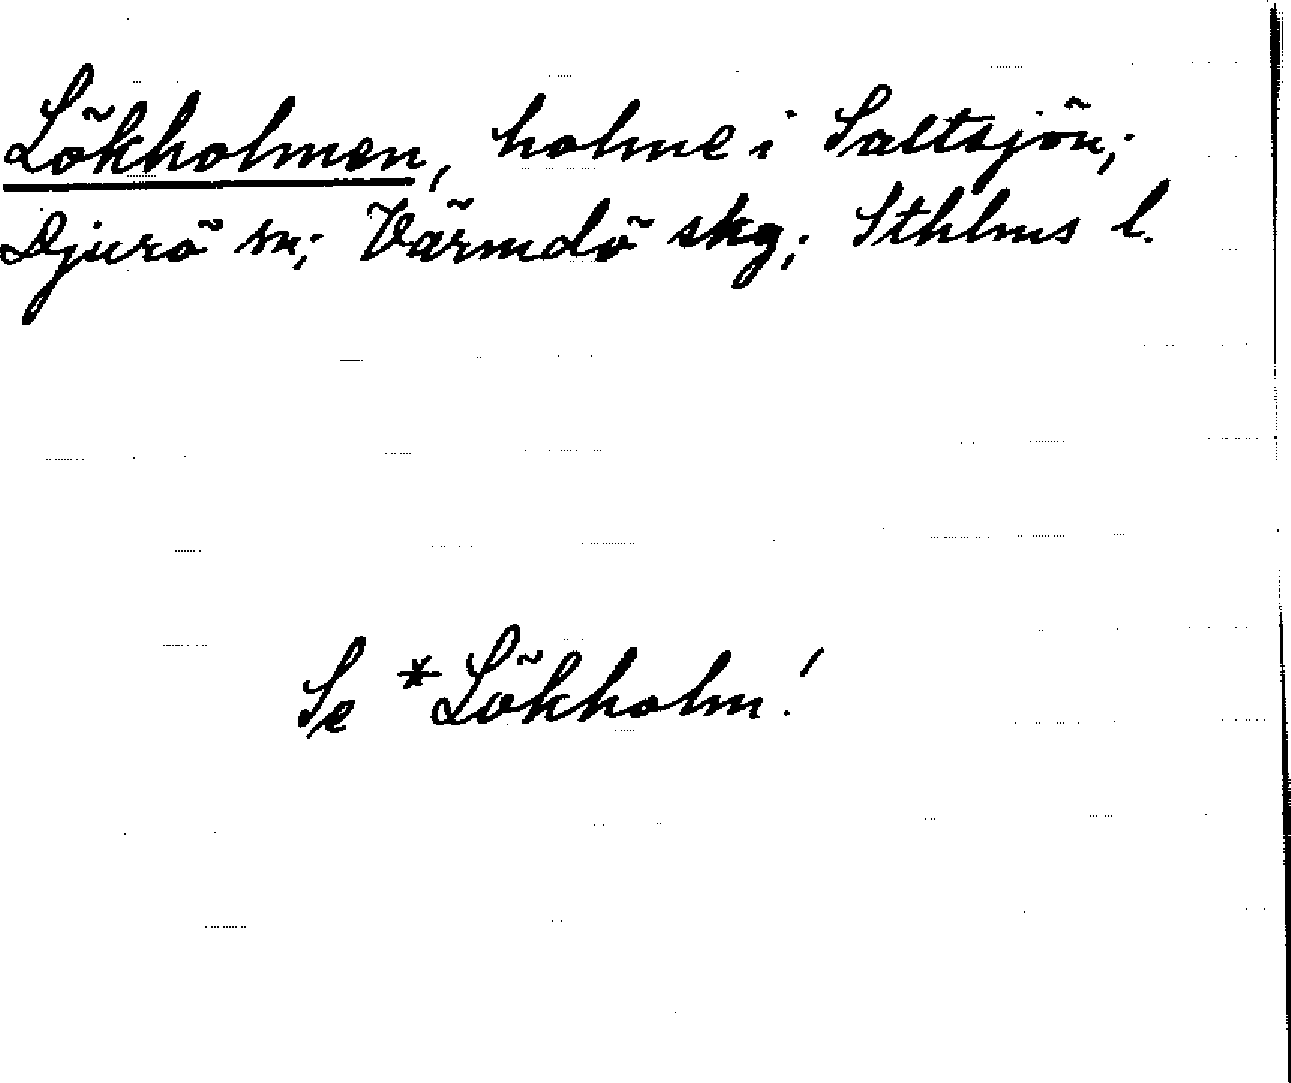 Lökholmen, holme i Saltsjön;
Djurö sn; Värmdö skg; Sthlms l.
Se *Lökholm!